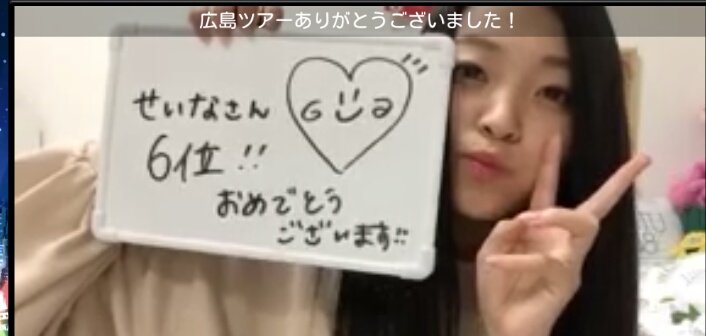 広島ツアーありがとうございました!
せいなさん
6位!!
おめでとう
ございます!!